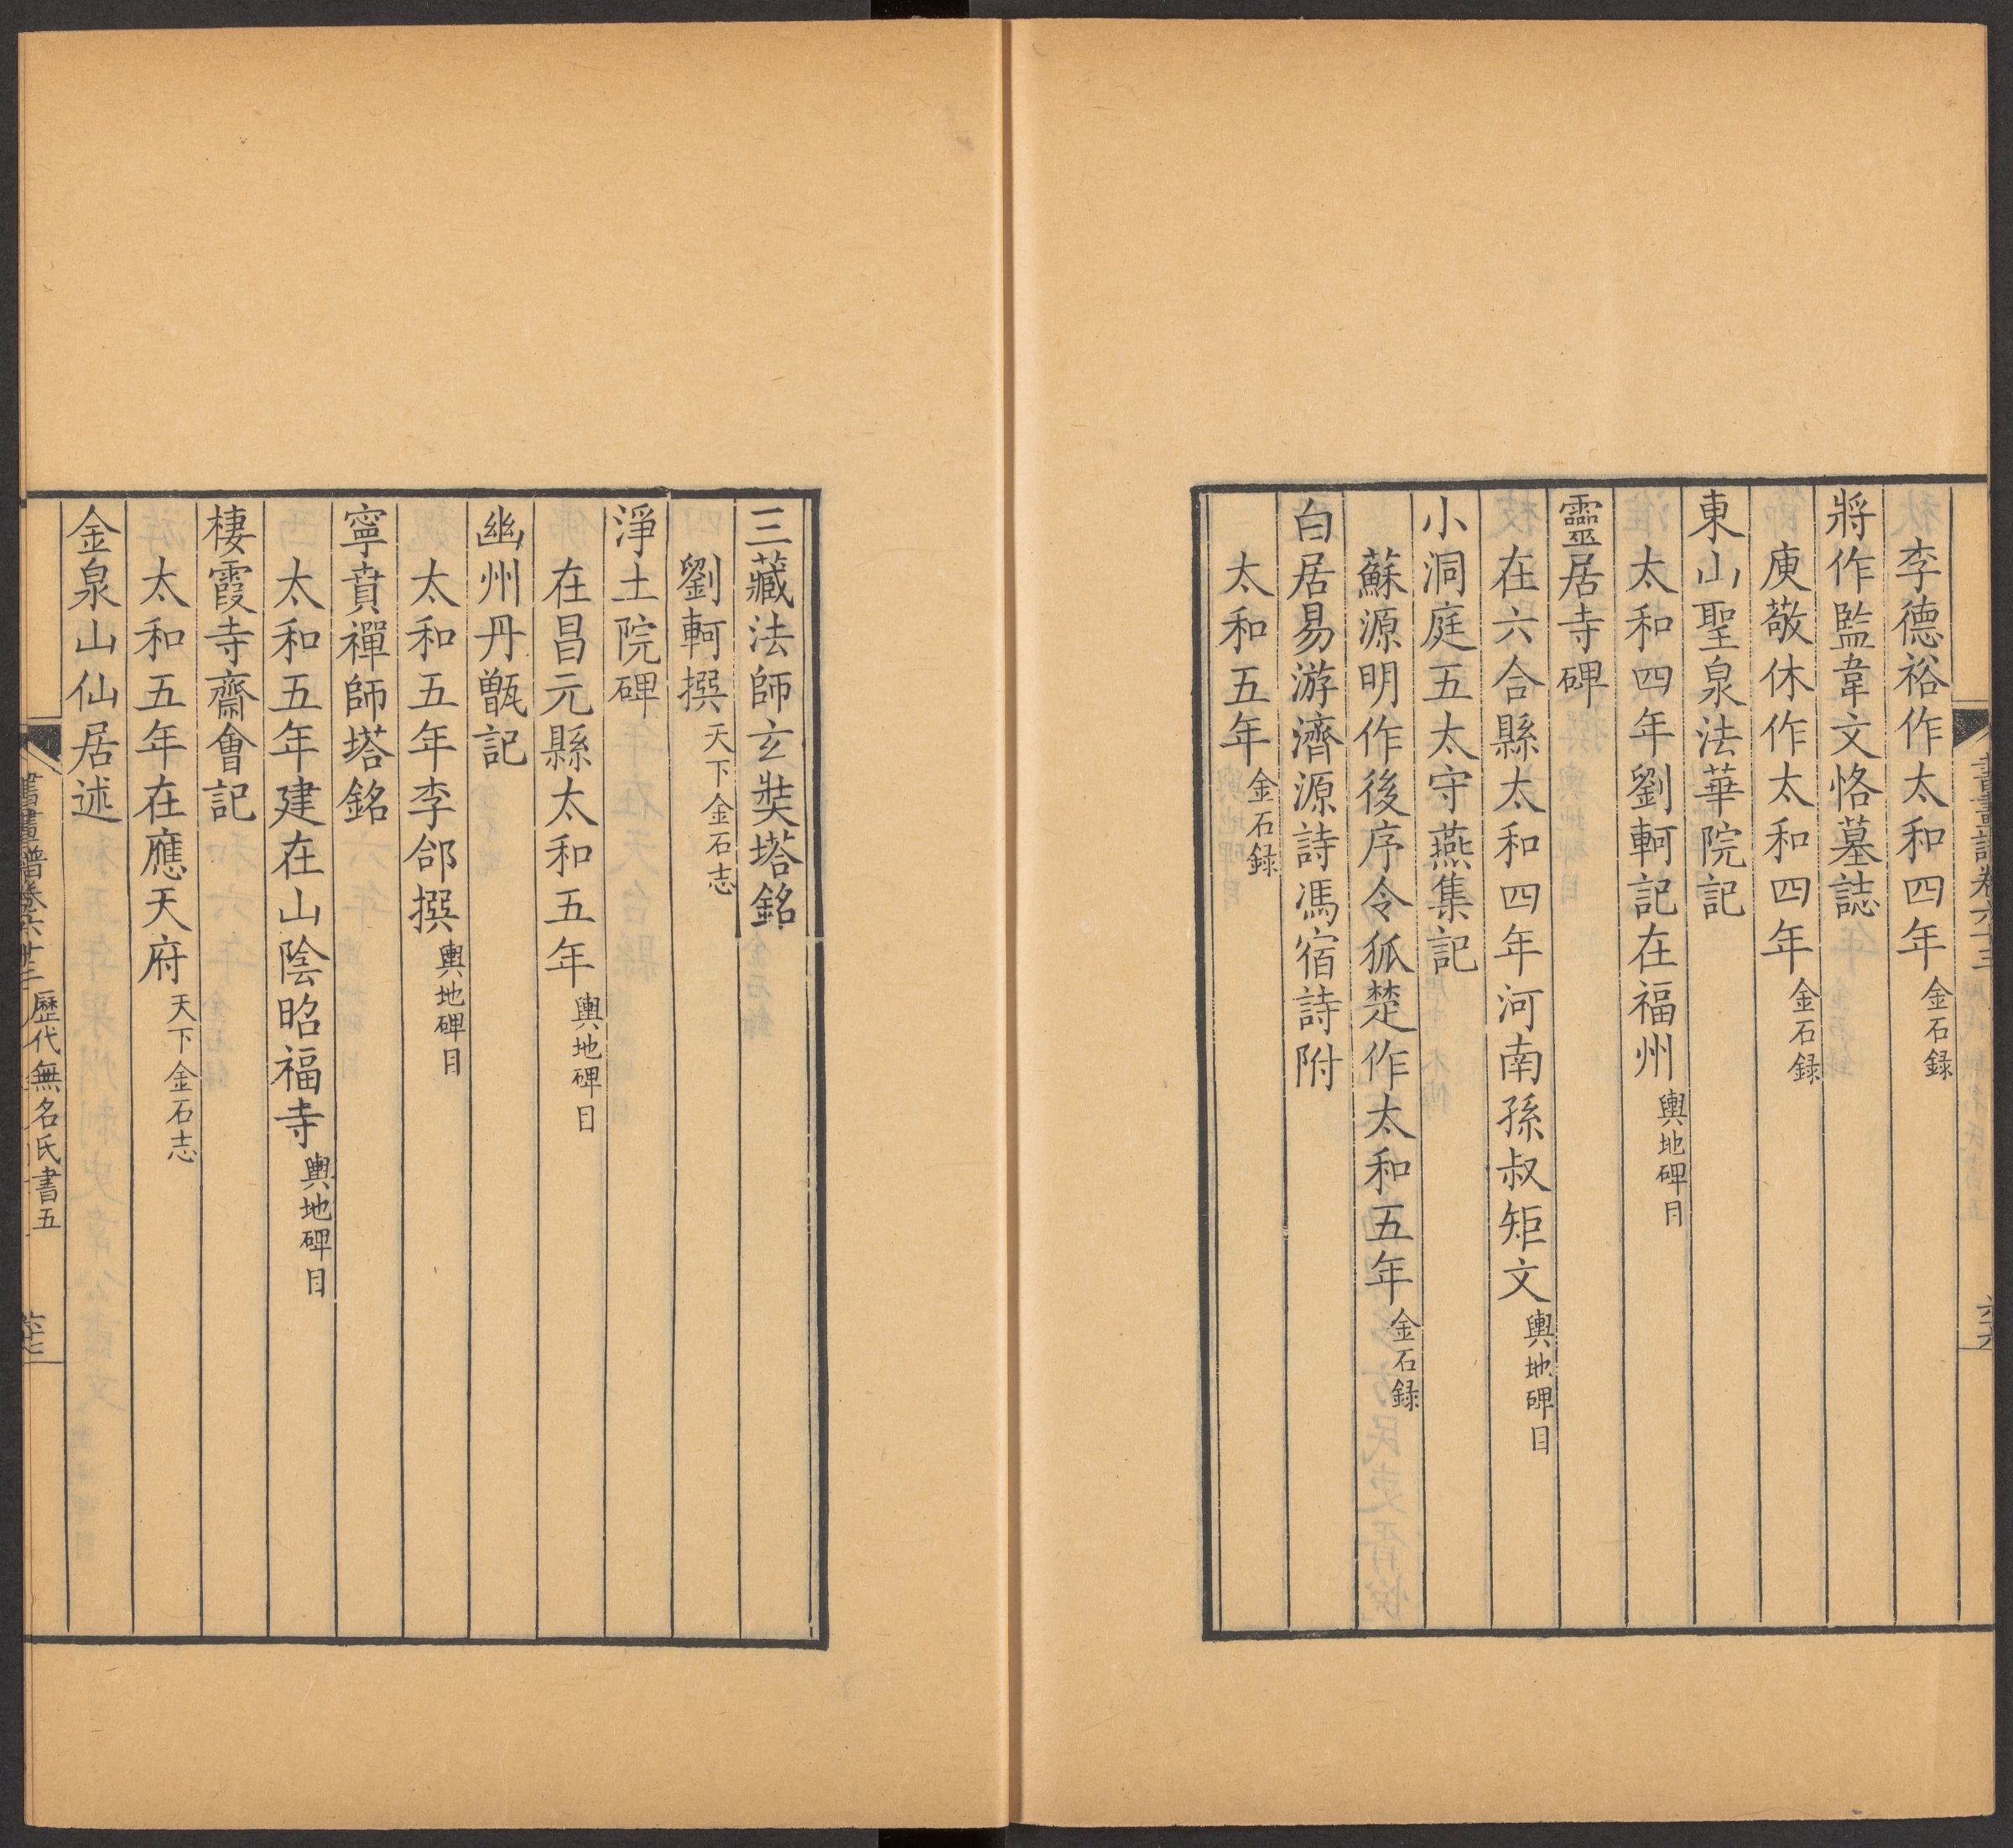 李德裕作太和四年金石録
將作監韋文恪墓誌
庾敬休作太和四年金石録
東山聖泉法華院記
太和四年劉軻記在福州輿地碑目
靈居寺碑
在六合縣太和四年河南孫叔矩文輿地碑目
小洞庭五太守燕集記
蘇源明作後序令狐楚作太和五年金石録
白居易游濟源詩馮宿詩附
太和五年金石録
三藏法師玄奘塔銘
劉軻撰天下金石志
淨土院碑
在昌元縣太和五年輿地碑目
幽州丹甑記
太和五年李郃撰輿地碑目
寧賁禪師塔銘
太和五年建在山陰昭福寺輿地碑目
棲霞寺齋會記
太和五年在應天府天下金石志
金泉山仙居述
歷代無名氏書五